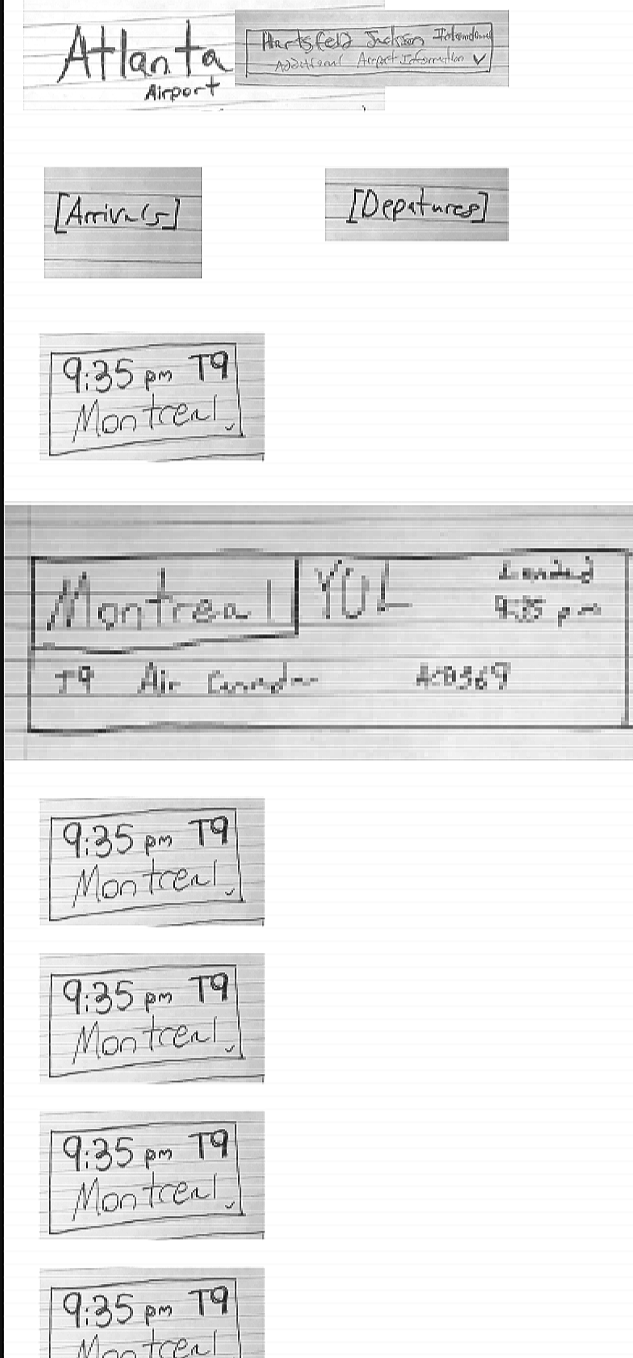 Atlanta
Airport
Hartsfeld Jackson
Additional Airport Information
[Arrivals]
[Depatures]
9:35 pm T9
Montreal
Montreal YUL Landed
9:35 pm
T9 Air Canada
9:35 pm T9
Montreal
9:35 pm T9
Montreal
9:35 pm T9
Montreal
9:35 pm T9
Montreal